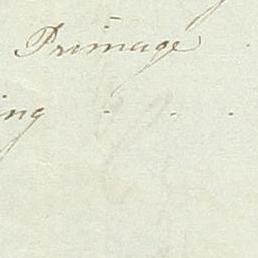 Primage
ing . . .